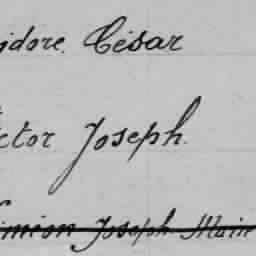 idore César
ctor Joseph
imion Joseph Main